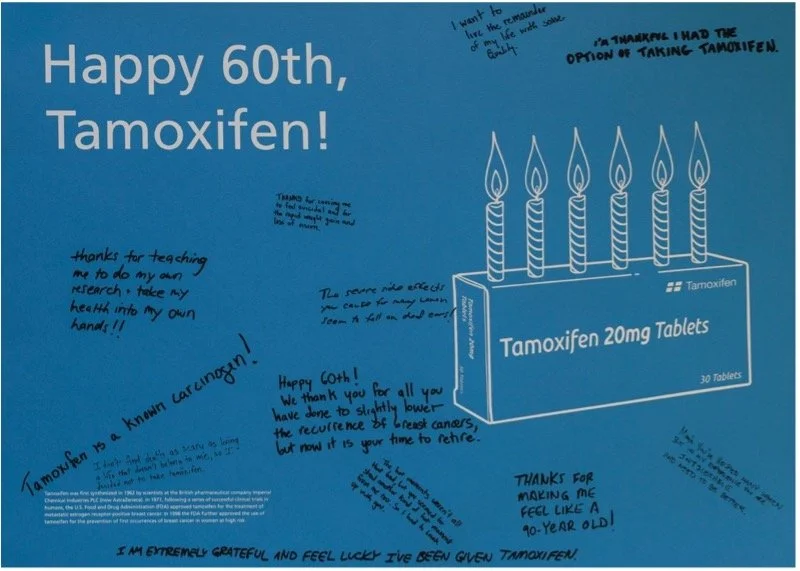 Happy 60th,
Tamoxifen!
I want to
live the remainder
of my life with some
Quality.
I'M THANKFUL I HAD THE
OPTION OF TAKING TAMOXIFEN.
THANKS for causing me
to feel suicidal and for
the rapid weight gain and
loss of
thanks for teaching
me to do my own
research + take my
health into my own
hands!!
The severe side effects
you cause for many women
seem to fall on deaf ears!
Tamoxifen
Tamoxifen 20mg Tablets
30 Tablets
Tamoxifen 20mg
Tablets
30 Tablets
Tamoxifen is a known carcinogen!
Happy 60th!
We thank you for all you
have done to slightly lower
the recurrence of breast cancers,
but now it is your time to retire.
I don't find death as scary as living
a life that doesn't belong to me, so I
decided not to take tamoxifen.
Tamoxifen was first synthesized in 1962 by scientists at the British pharmaceutical company Imperial
Chemical Industries PLC (now AstraZeneca). In 1977, following a series of successful clinical trials in
humans, the U.S. Food and Drug Administration (FDA) approved tamoxifen for the treatment of
metastatic estrogen receptor-positive breast cancer. In 1998 the FDA further approved the use of
tamoxifen for the prevention of first occurrences of breast cancer in women at high risk.
THANKS FOR
MAKING ME
FEEL LIKE A
90-YEAR OLD!
I AM EXTREMELY GRATEFUL AND FEEL LUCKY I'VE BEEN GIVEN TAMOXIFEN.